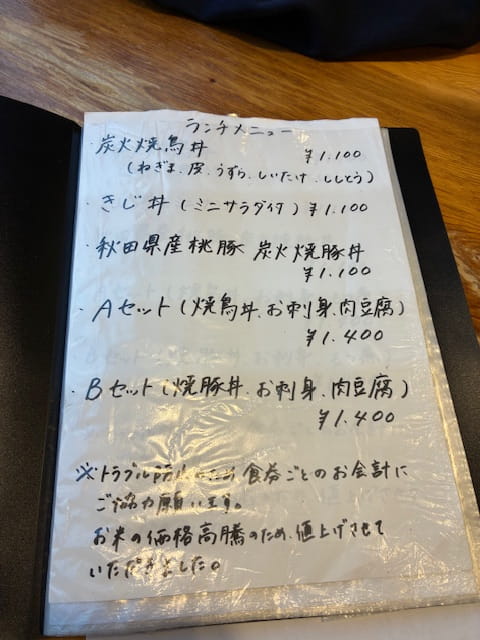 ランチメニュー
・炭火焼鳥丼 ¥1.100
(ねぎま、皮、うずら、しいたけ、ししとう)
・きじ丼(ミニサラダ付) ¥1.100
・秋田県産桃豚 炭火焼豚丼
¥1.100
・Aセット(焼鳥丼、お刺身、肉豆腐)
¥1.400
・Bセット(焼豚丼、お刺身、肉豆腐)
¥1.400
※トラブル防止のため食券ごとのお会計に
ご協力願います。
お米の価格高騰のため、値上げさせて
いただきました。